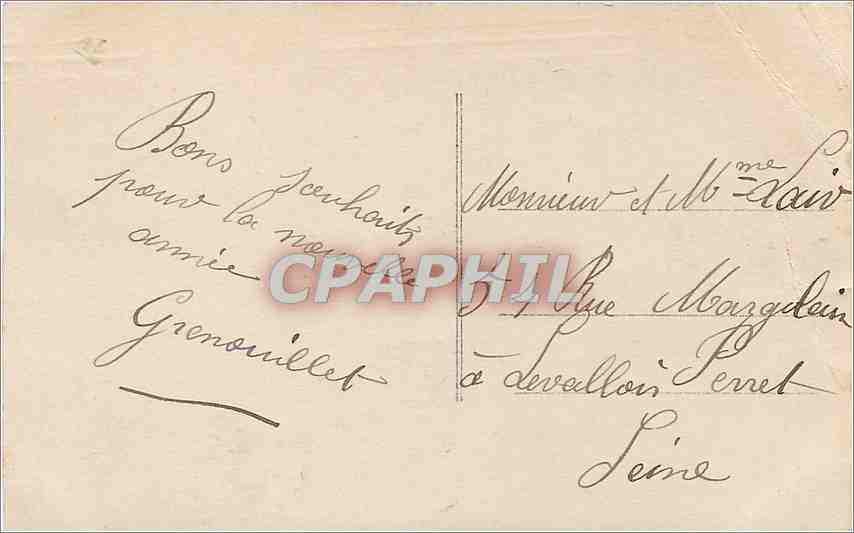 Bons souhaits
pour la nouvelle
année
Grenouillet
Monsieur et Mme Lair
54 Rue
à Levallois Perret
Seine
CPAPHIL